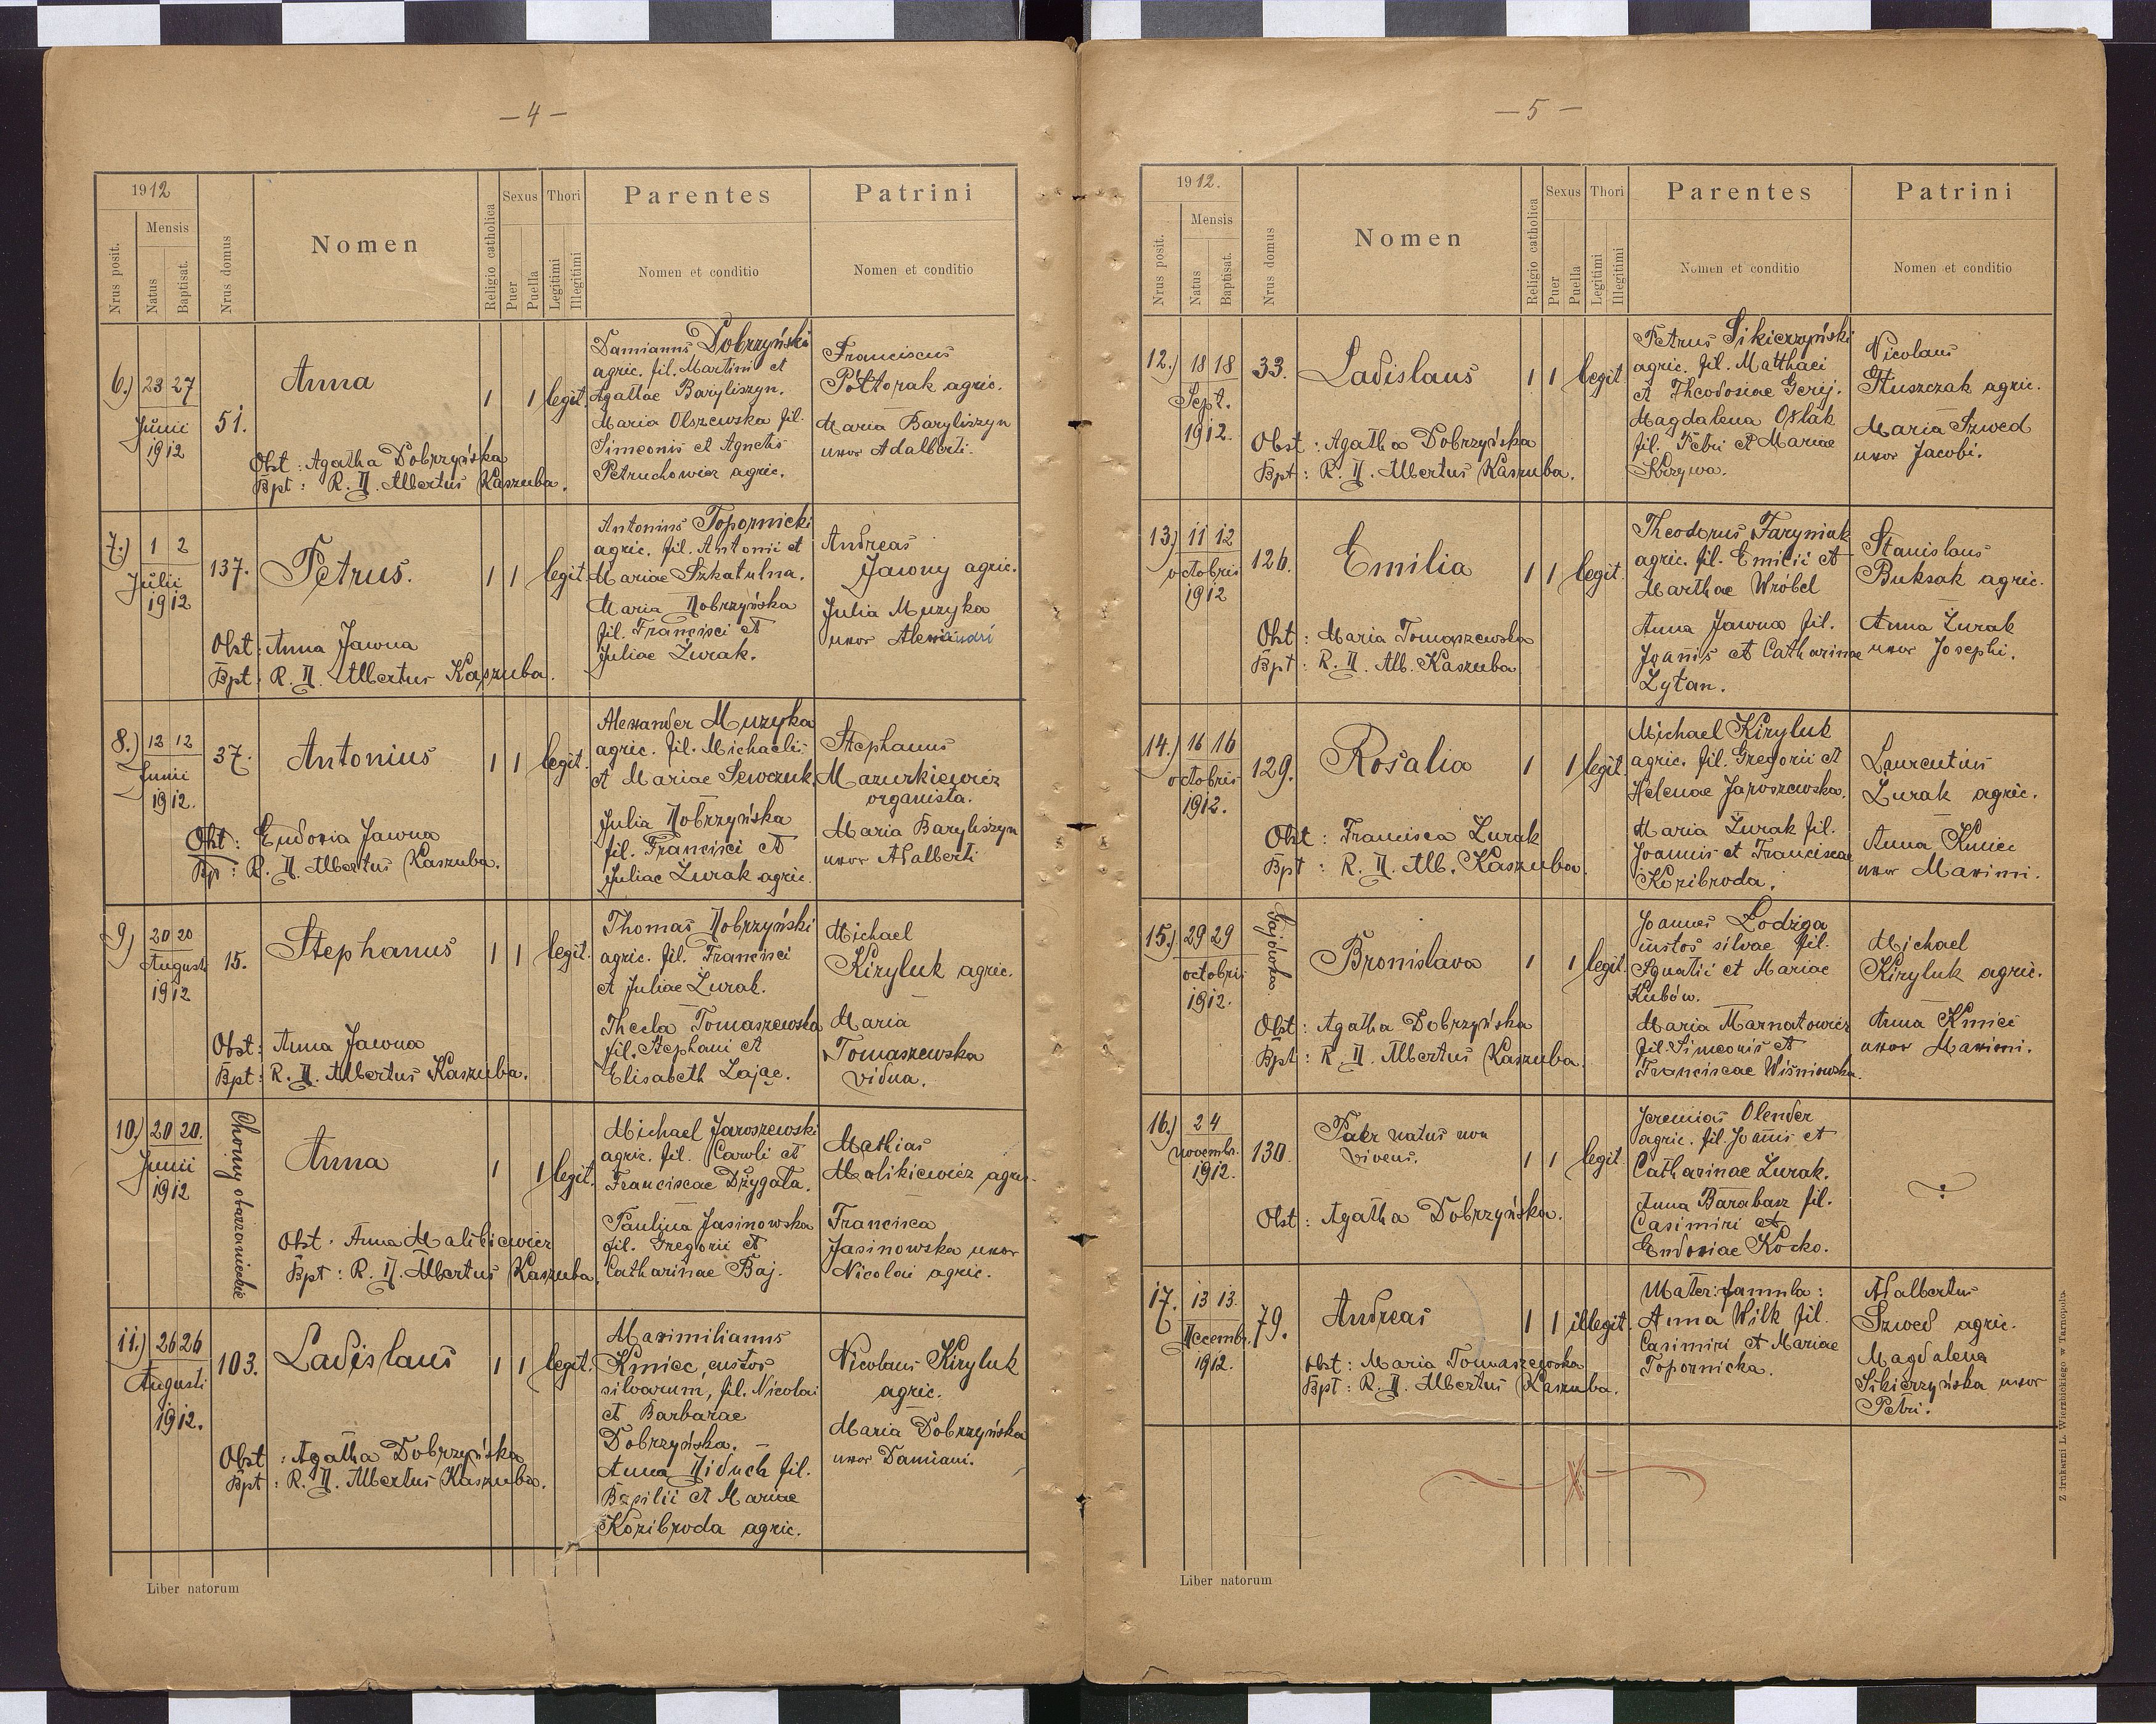 — 4 —
1912
Nrus posit.
Mensis
Natus
Baptisat.
Nrus domus
Nomen
Religio catholica
Sexus
Puer
Puella
Thori
Legitimi
Illegitimi
Parentes
Nomen et conditio
Patrini
Nomen et conditio
6.) 23 27
Junii
1912
51.
Anna
1 1 legit.
Obst : Agatha Dobrzyńska
Bpt : R. D. Albertus Kaszuba.
Damianus Dobrzyński
agric. fil. Martini et
Agathae Baryliszyn.
Maria Olszewska fil.
Simeonis et Agnetis
Petruchowicz agric.
Franciscus
Półtorak agric.
Maria Baryliszyn
uxor Adalberti.
7.) 1 2
Julii
1912
137.
Petrus.
1 1 legit.
Obst : Anna Jawna
Bpt : R. D. Albertus Kaszuba.
Antonius Topornicki
agric. fil. Antonii et
Mariae Szkatulna.
Maria Dobrzyńska
fil. Francisci et
Juliae Żurak.
Andreas
Jawny agric.
Julia Muzyka
uxor Alexandri
8.) 12 12
Junii
1912.
37.
Antonius
1 1 legit.
Obst : Eudoxia Jawna
Bp : R. D. Albertus Kaszuba.
Alexander Muzyka
agric. fil. Michaelis
et Mariae Sewczuk.
Julia Dobrzyńska
fil. Francisci et
Juliae Żurak agric.
Stephanus
Mazurkiewicz
organista.
Maria Baryliszyn
uxor Adalberti
9) 20 20
Augusti
1912
15.
Stephanus
1 1 legit.
Obst : Anna Jawna
Bpt : R. D. Albertus Kaszuba.
Thomas Dobrzyński
agric. fil. Francisci
et Juliae Żurak.
Thecla Tomaszewska
fil. Stephani et
Elisabeth Zając.
Michael
Kiryluk agric.
Maria
Tomaszewska
vidua.
10.) 20 20.
Junii
1912
Anna
1 1 legit.
Obst . Anna Malikiewicz
Bpt : R. D. Albertus Kaszuba.
Michael Jaroszewski
agric. fil. Caroli et
Franciscae Drzygała.
Paulina Jasinowska
fil. Gregorii et
Catharinae Baj.
Mathias
Malikiewicz agric.
Francisca
Jasinowska uxor
Nicolai agric.
11.) 26 26
Augusti
1912.
103.
Ladislaus
1 1 legit.
Obst : Agatha Dobrzyńska
Bpt : R. D. Albertus Kaszuba.
Maximilianus
Kmieć custos
silvarum, fil. Nicolai
et Barbarae
Dobrzyńska. —
Anna Diduch fil.
Basilii et Mariae
Kozibroda agric.
Nicolaus Kiryluk
agric.
Maria Dobrzyńska
uxor Damiani.
Liber natorum
— 5 —
1912.
Nrus posit.
Mensis
Natus
Baptisat.
Nrus domus
Nomen
Religio catholica
Sexus
Puer
Puella
Thori
Legitimi
Illegitimi
Parentes
Nomen et conditio
Patrini
Nomen et conditio
12.) 18 18
Sept.
1912.
33.
Ladislaus
1 1 legit.
Obst : Agatha Dobrzyńska
Bpt : R. D. Albertus Kaszuba.
Petrus Sikierzyński
agric. fil. Matthaei
et Theodosiae Gerij.
Magdalena Oxlak
fil. Petri et Mariae
Krzywa.
Nicolaus
Głuszczak agric.
Maria Szwed
uxor Jacobi.
13.) 11 12
octobris
1912
126.
Emilia
1 1 legit.
Obst : Maria Tomaszewska
Bpt : R. D. Alb. Kaszuba
Theodorus Faryniak
agric. fil. Emilii et
Marthae Wróbel
Anna Jawna fil.
Joanis et Catharinae
Zytan.
Stanislaus
Buksak agric.
Anna Żurak
uxor Josephi.
14.) 16 16
octobris
1912.
129.
Rosalia
1 1 legit.
Obst : Francisca Żurak
Bpt : R. D. Alb. Kaszuba.
Michael Kiryluk
agric. fil. Gregorii et
Helenae Jaroszewska.
Maria Żurak fil.
Joannis et Franciscae
Kozibroda.
Laurentius
Żurak agric.
Anna Kmieć
uxor Maximi.
15.) 29 29
octobris
1912.
Gajówka.
Bronislava
1 1 legit.
Obst : Agatha Dobrzyńska
Bpt : R. D. Albertus Kaszuba.
Joannes Lodziga
custos silvae fil.
Ignatii et Mariae
Kubów.
Maria Marnatowicz
fil. Simeonis et
Franciscae Wiśniowska.
Michael
Kiryluk agric.
Anna Kmieć
uxor Maximi.
16.) 2 4
novembr.
1912.
130.
Puer natus non
vivens.
1 1 legit.
Obst : Agatha Dobrzyńska.
Jeremias Olender
agric. fil. Joanis et
Catharinae Żurak.
Anna Barabasz fil.
Casimiri et
Eudoxiae Kocko.
17. 13 13.
Decembr.
1912.
79.
Andreas
1 1 illegit.
Obst : Maria Tomaszewska
Bpt : R. D. Albertus Kaszuba.
Mater: famula :
Anna Wilk fil.
Casimiri et Mariae
Topornicka.
Adalbertus
Szwed agric.
Magdalena
Sikierzyńska uxor
Petri.
Liber natorum
Z drukarni L. Wierzbickiego w Tarnopolu.